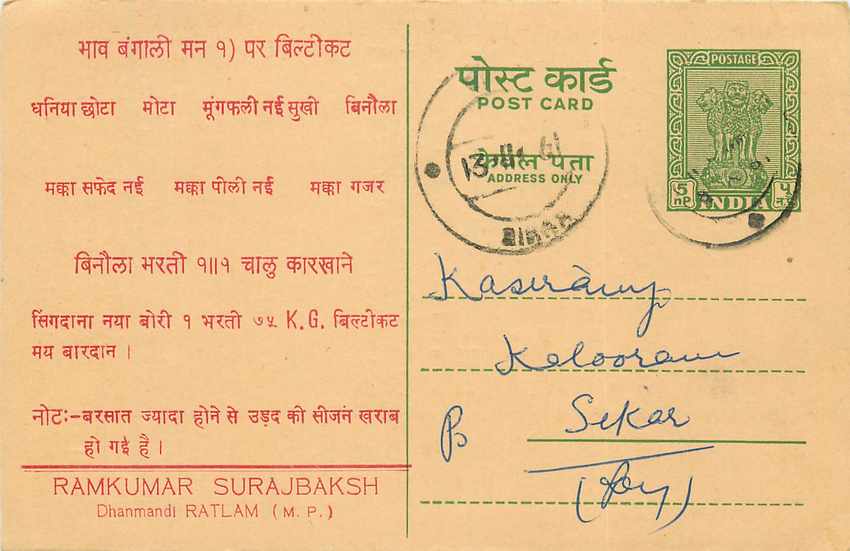 भाव बंगाली मन १) पर बिल्टीकट
धनिया छोटा मोटा मूंगफली नई सुखी बिनौला
मक्का सफेद नई मक्का पीली नई मक्का गजर
बिनौला भरती १॥१ चालु कारखाने
सिंगदाना नया बोरी १ भरती ७५ K.G. बिल्टीकट
मय बारदान ।
नोट:-बरसात ज्यादा होने से उड़द की सीजन खराब
हो गई है ।
RAMKUMAR SURAJBAKSH
Dhanmandi RATLAM (M. P.)
पोस्ट कार्ड
POST CARD
केवल पता
ADDRESS ONLY
POSTAGE
५ nP INDIA ५ न.पै.
13 61
Kaluram
Sikar